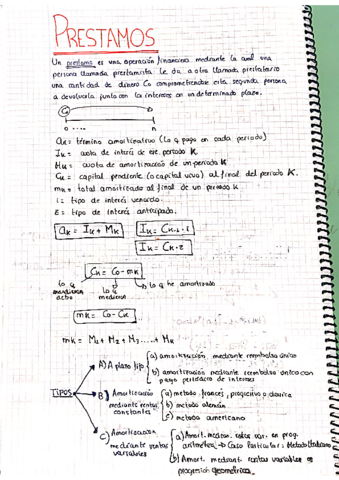 PRESTAMOS
Un prestamo es una operación financiera mediante la cual una
persona llamada prestamista le da a otro llamado prestatario
una cantidad de dinero Co comprometiendose esta segunda persona
a devolverla junto con los intereses en un determinado plazo.
Co
0 ..... n
aK = término amortizativo (lo q pago en cada periodo)
IK = cuota de interés de ese periodo K.
MK = cuota de amortización de un periodo K
CK = capital pendiente (o capital vivo) al final del periodo K.
mK = total amortizado al final de un periodo K
i = tipo de interés vencido.
E = tipo de interés anticipado.
aK = IK + MK
IK = CK-1 · i
IK = CK · E
CK = Co - mK
lo q
lo q he amortizado
mK = Co - CK
mK = M1 + M2 + M3 .... + MK
TIPOS
A) A plazo fijo
a) amortización, mediante reembolso único
b) amortización mediante reembolso único con
pago periodico de interes
B) Amortización
mediante rentas
constantes
a) metodo francés, progresivo o
b) metodo alemán
c) metodo americano
C) Amortizacion
mediante rentas
variables
a) Amort. median. rentas var. en prog.
aritmética → Caso particular: Metodo Italiano
b) Amort. mediant. rentas variables en
progresion geometrica.